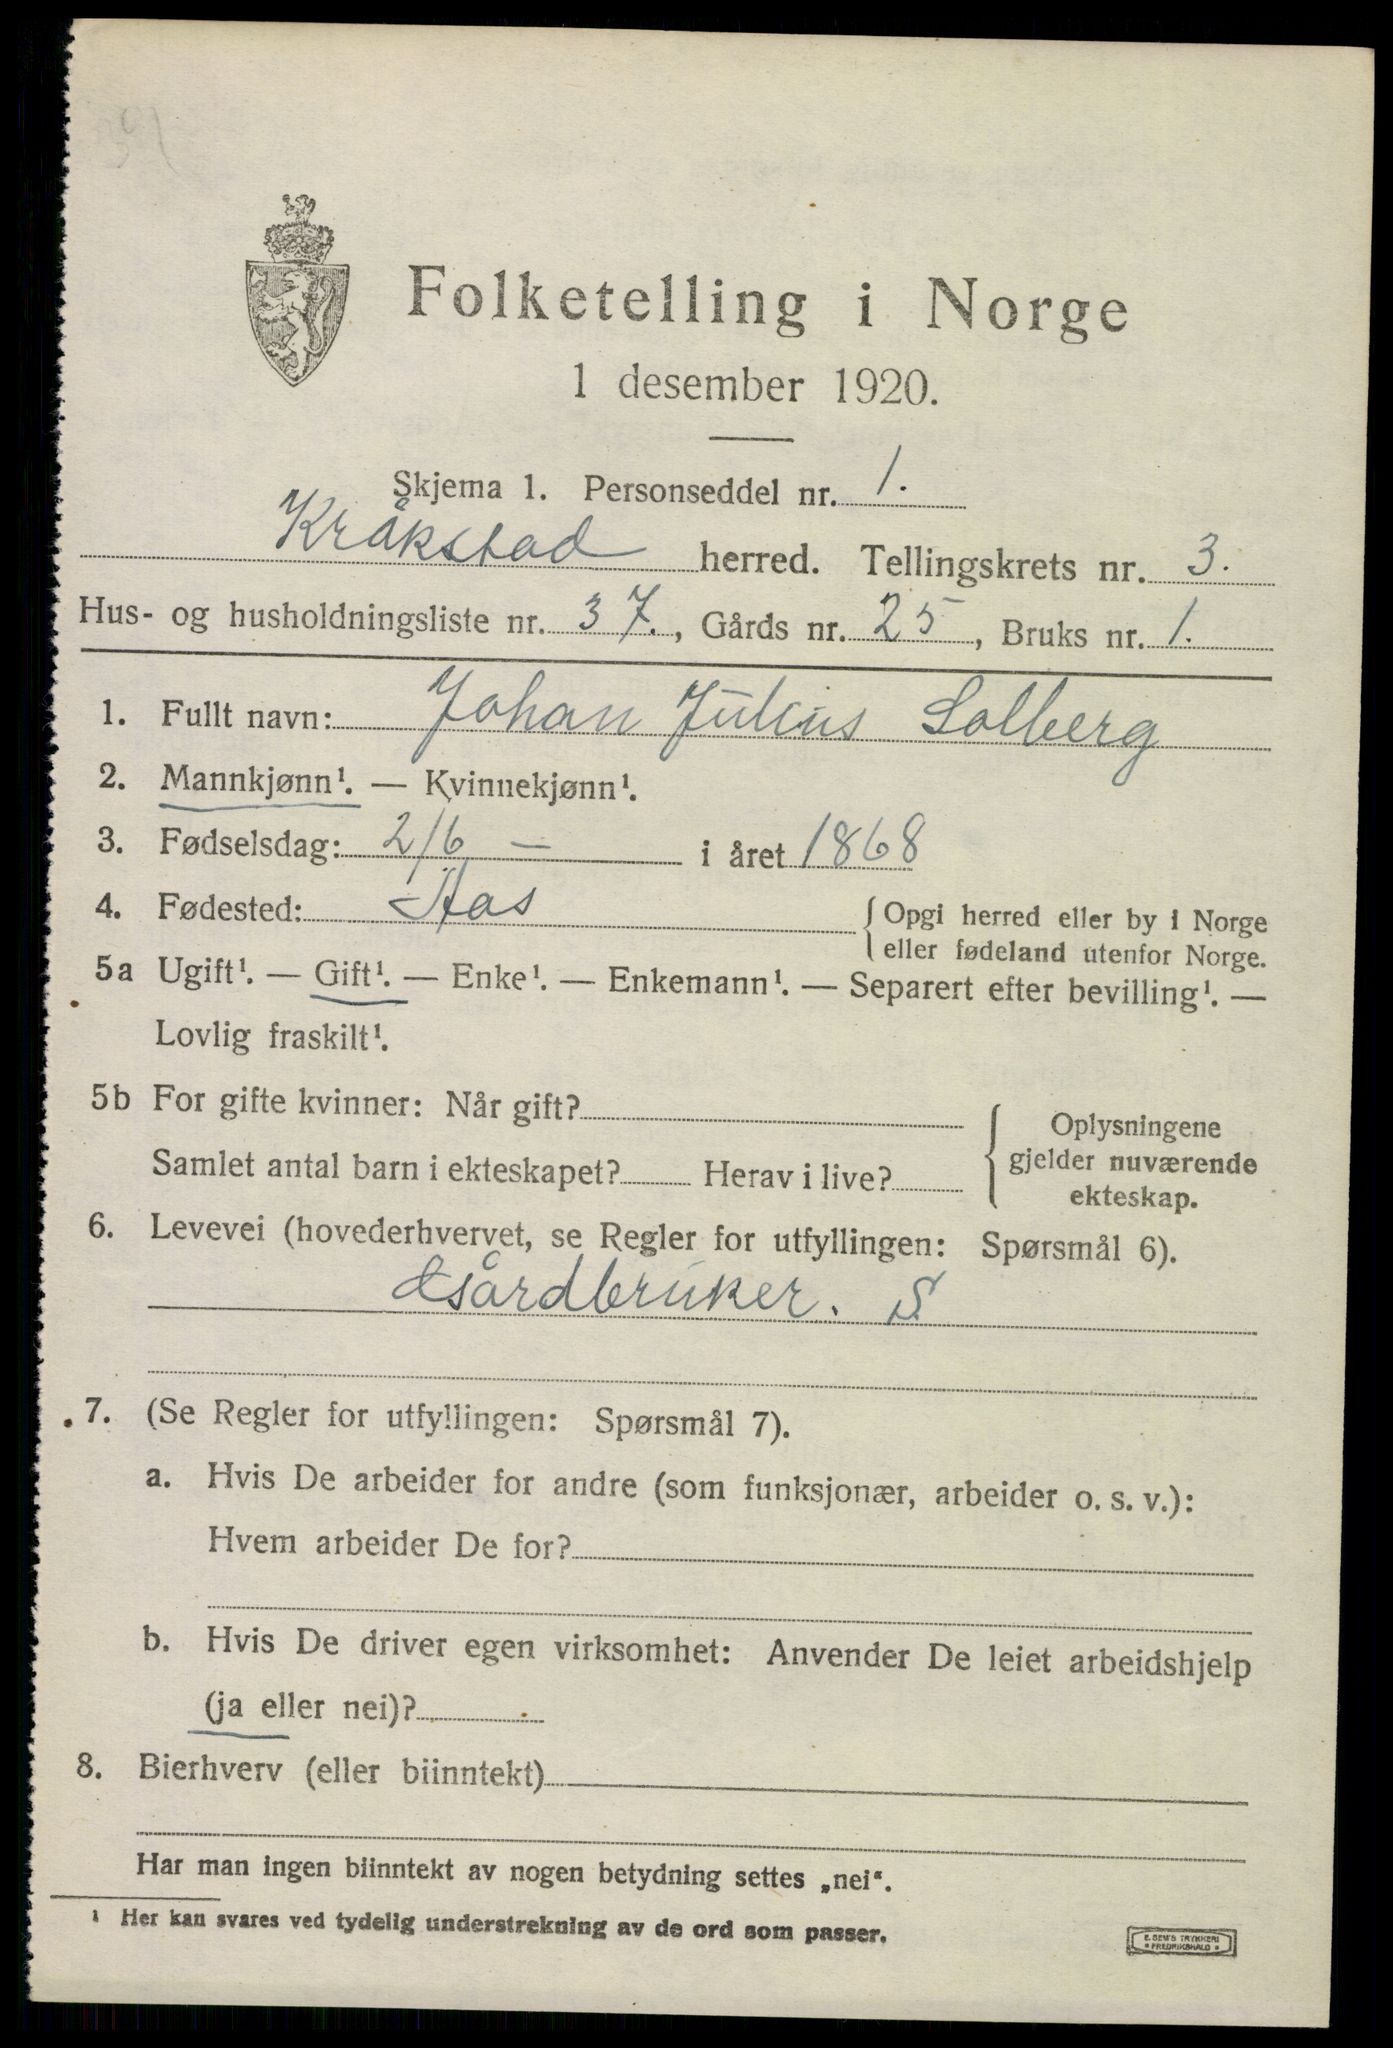 Folketelling i Norge
1 desember 1920.
Skjema 1. Personseddel nr. 1.
Kråkstad herred. Tellingskrets nr. 3.
Hus- og husholdningsliste nr. 37., Gårds nr. 25, Bruks nr. 1.
1. Fullt navn: Johan Julius Solberg
2. Mannkjønn¹. — Kvinnekjønn¹.
3. Fødselsdag: 2/6 — i året 1868
4. Fødested: Aas {Opgi herred eller by i Norge
eller fødeland utenfor Norge.
5a Ugift¹. — Gift¹. — Enke¹. — Enkemann¹. — Separert efter bevilling¹. —
Lovlig fraskilt¹.
5b For gifte kvinner: Når gift?
Samlet antal barn i ekteskapet? Herav i live?
Oplysningene
gjelder nuværende
ekteskap.
6. Levevei (hovederhvervet, se Regler for utfyllingen: Spørsmål 6).
Gårdbruker. S
7. (Se Regler for utfyllingen: Spørsmål 7).
a. Hvis De arbeider for andre (som funksjonær, arbeider o. s. v.):
Hvem arbeider De for?
b. Hvis De driver egen virksomhet: Anvender De leiet arbeidshjelp
(ja eller nei)?
8. Bierhverv (eller biinntekt)
Har man ingen biinntekt av nogen betydning settes „nei“.
¹ Her kan svares ved tydelig understrekning av de ord som passer.
E. SEM'S TRYKKERI
FREDRIKSHALD